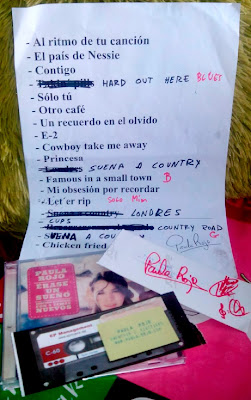 - Al ritmo de tu canción
- El país de Nessie
- Contigo
- HARD OUT HERE BLUES
- Sólo tú
- Otro café
- Un recuerdo en el olvido
- E-2
- Cowboy take me away
- Princesa
- SUENA A COUNTRY
- Famous in a small town B
- Mi obsesión por recordar
- Let'er rip Solo Mim
- LONDRES
CUPS
- COUNTRY ROAD G
SUENA A COUNTRY
- Chicken fried
Paula Rojo
Paula Rojo
PAULA
ROJO
ÉRASE
UN
SUEÑO
NUEVOS
C-60
PAULA ROJO